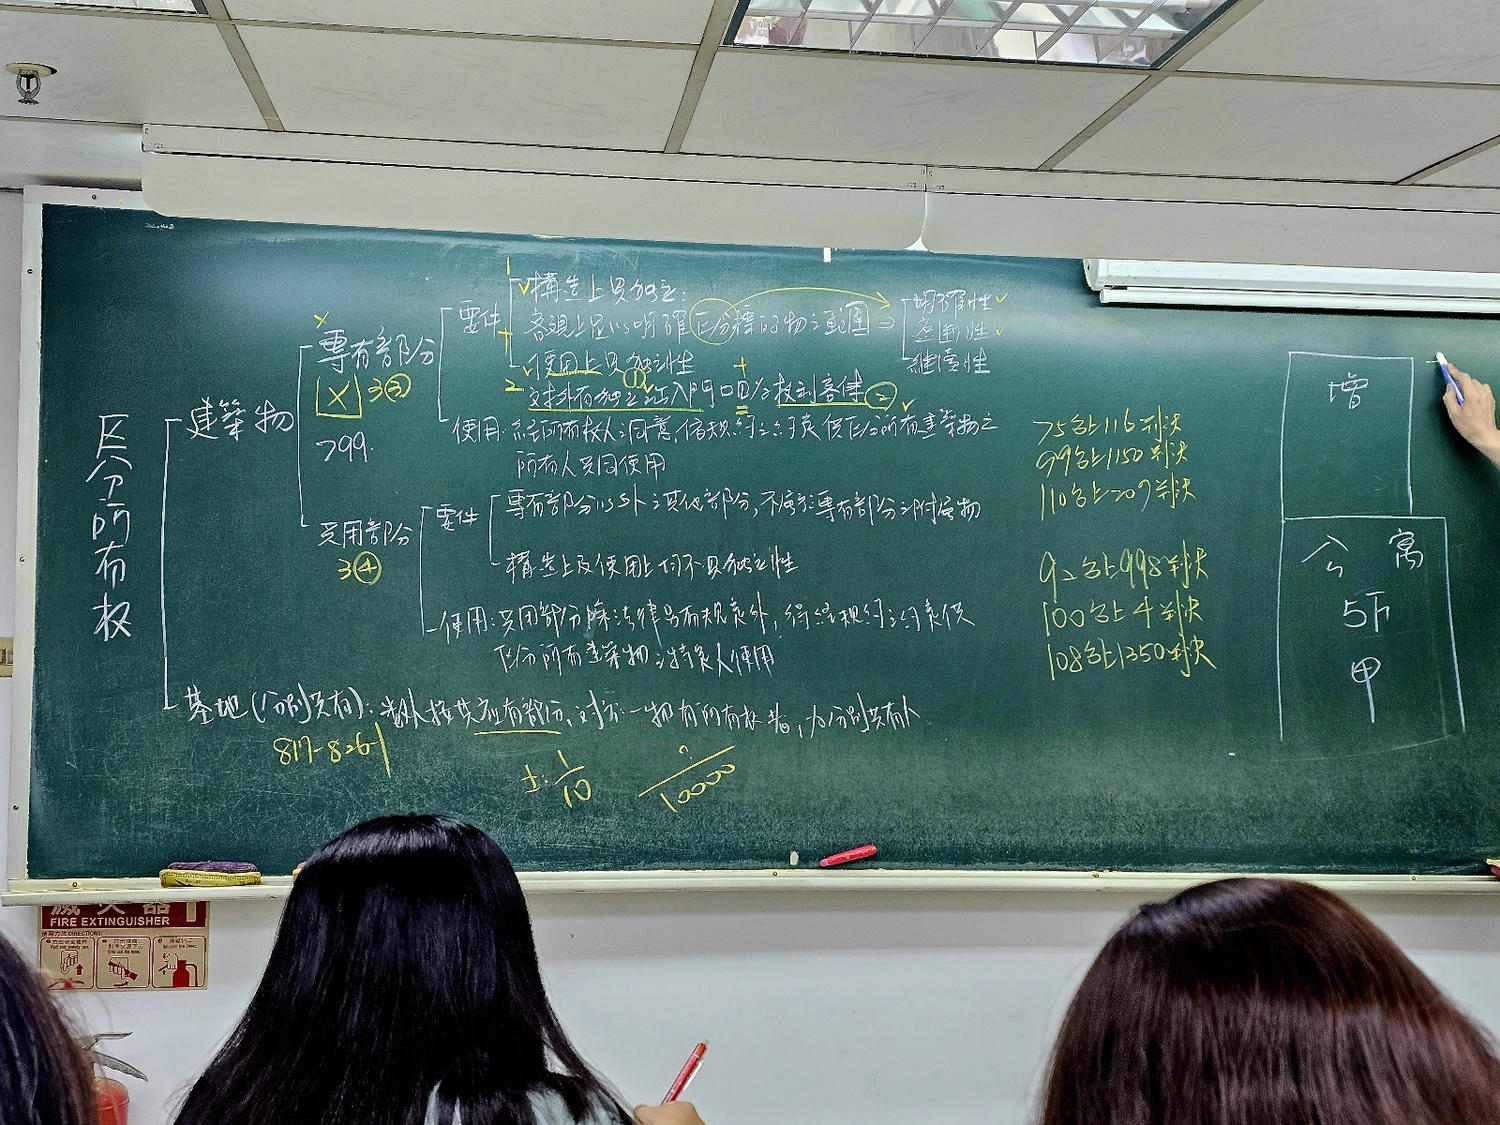 区分所有权
建築物
專有部分
X 3③
799.
要件
1 構造上具独立:
客观上足以明確区分標的物之範囲⇒
明確性
遮断性
継續性
+
2 使用上具独立性
文対外有独立之出入門口 権利客体②
使用:経所有权人之同意,依規約之約定供区分所有建築物之
所有人共同使用
共用部分
3④
要件
專有部分以外之其他部分,不属於專有部分之附属物
構造上及使用上均不具独立性
使用:共用部分除法律另有規定外,得経規約之約定供
区分所有建築物之特定人使用
基地(分別共有):数人按其应有部分,対於一物有所有权者,为分別共有人
817-826-1
土:1/10
?/10000
75台上116判決
99台上1150判決
110台上209判決
92台上998判決
100台上4判決
108台上1350判決
增
公寓
5下
甲
滅火器
FIRE EXTINGUISHER
使用方法DIRECTIONS: